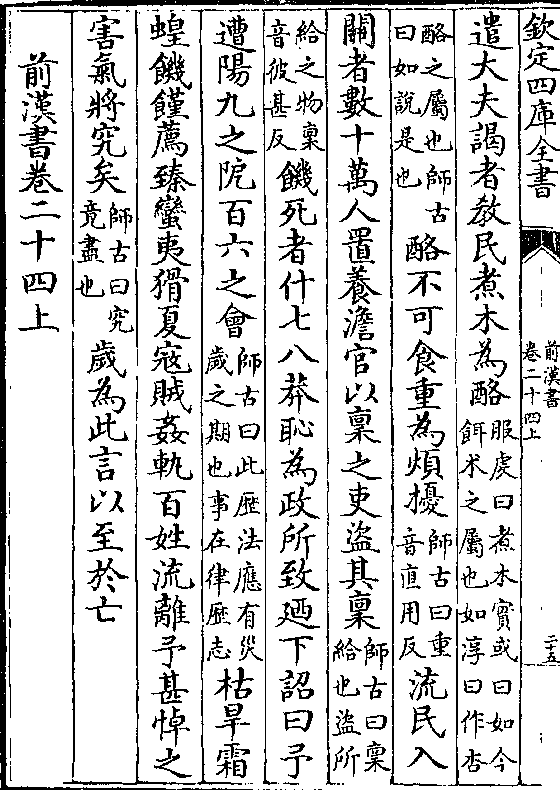 欽定四庫全書
前漢書
卷二十四上
二十五
遣大夫謁者教民煮木為酪服䖍曰煮木實或曰如今餌术之屬也如淳曰作杏
酪之屬也師古曰如說是也酪不可食重為煩擾師古曰重音直用反流民入
關者數十萬人置養澹官以稟之吏盜其稟師古曰稟給也盜所
給之物稟音彼甚反饑死者什七八莽恥為政所致廼下詔曰予
遭陽九之阸百六之會師古曰此歴法應有災歲之期也事在律歴志枯旱霜
蝗饑饉薦臻蠻夷猾夏寇賊姦軌百姓流離予甚悼之
害氣將究矣師古曰究竟盡也歲為此言以至於亡
前漢書卷二十四上